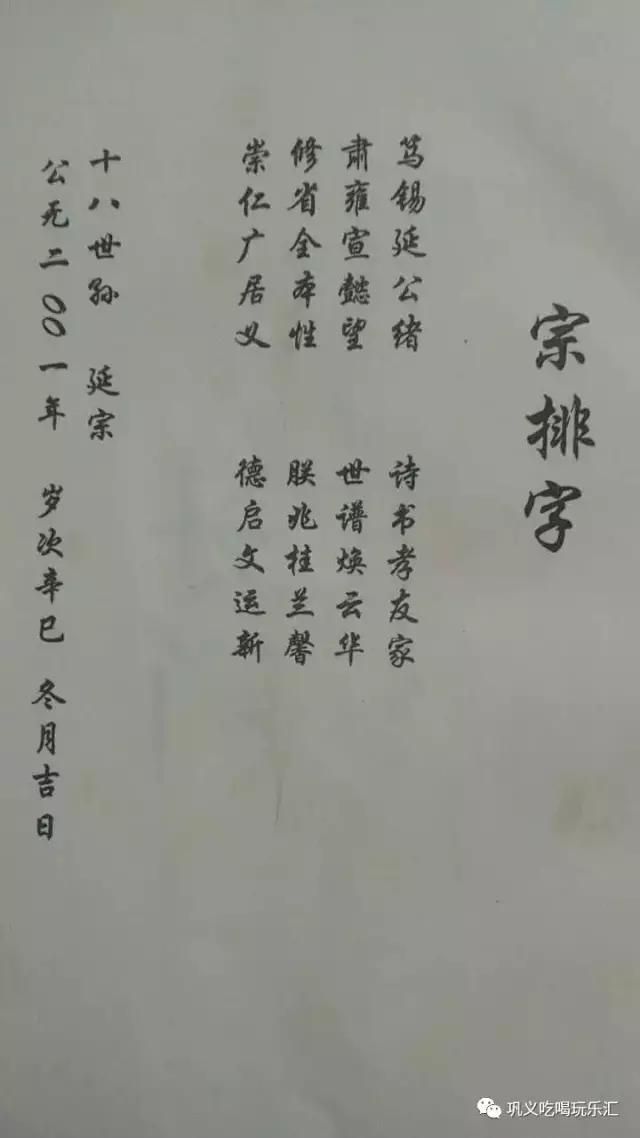 宗排字
笃锡延公绪 诗书孝友家
肃雍宣懿望 世谱焕云华
修省全本性 朕兆桂兰馨
崇仁广居义 德启文运新
十八世孙 延宗
公元二00一年 岁次辛巳 冬月吉日
巩义吃喝玩乐汇